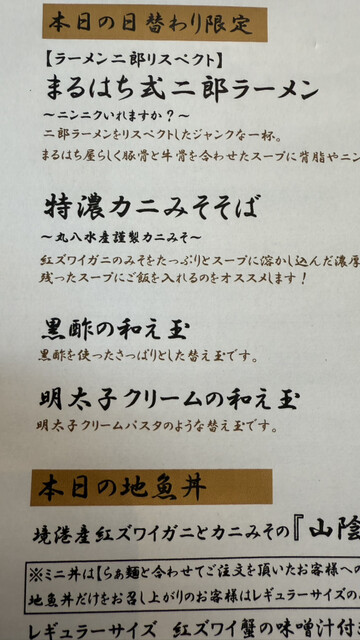 本日の日替わり限定
【ラーメン二郎リスペクト】
まるはち式二郎ラーメン
～ニンニクいれますか？～
二郎ラーメンをリスペクトしたジャンクな一杯。
まるはち屋らしく豚骨と牛骨を合わせたスープに背脂やニン
特濃カニみそそば
～丸八水産謹製カニみそ～
紅ズワイガニのみそをたっぷりとスープに溶かし込んだ濃厚
残ったスープにご飯を入れるのをオススメします！
黒酢の和え玉
黒酢を使ったさっぱりとした替え玉です。
明太子クリームの和え玉
明太子クリームパスタのような替え玉です。
本日の地魚丼
境港産紅ズワイガニとカニみその『山陰
※ミニ丼は【らぁ麺と合わせてご注文を頂いたお客様への
地魚丼だけをお召し上がりのお客様はレギュラーサイズの
レギュラーサイズ 紅ズワイ蟹の味噌汁付